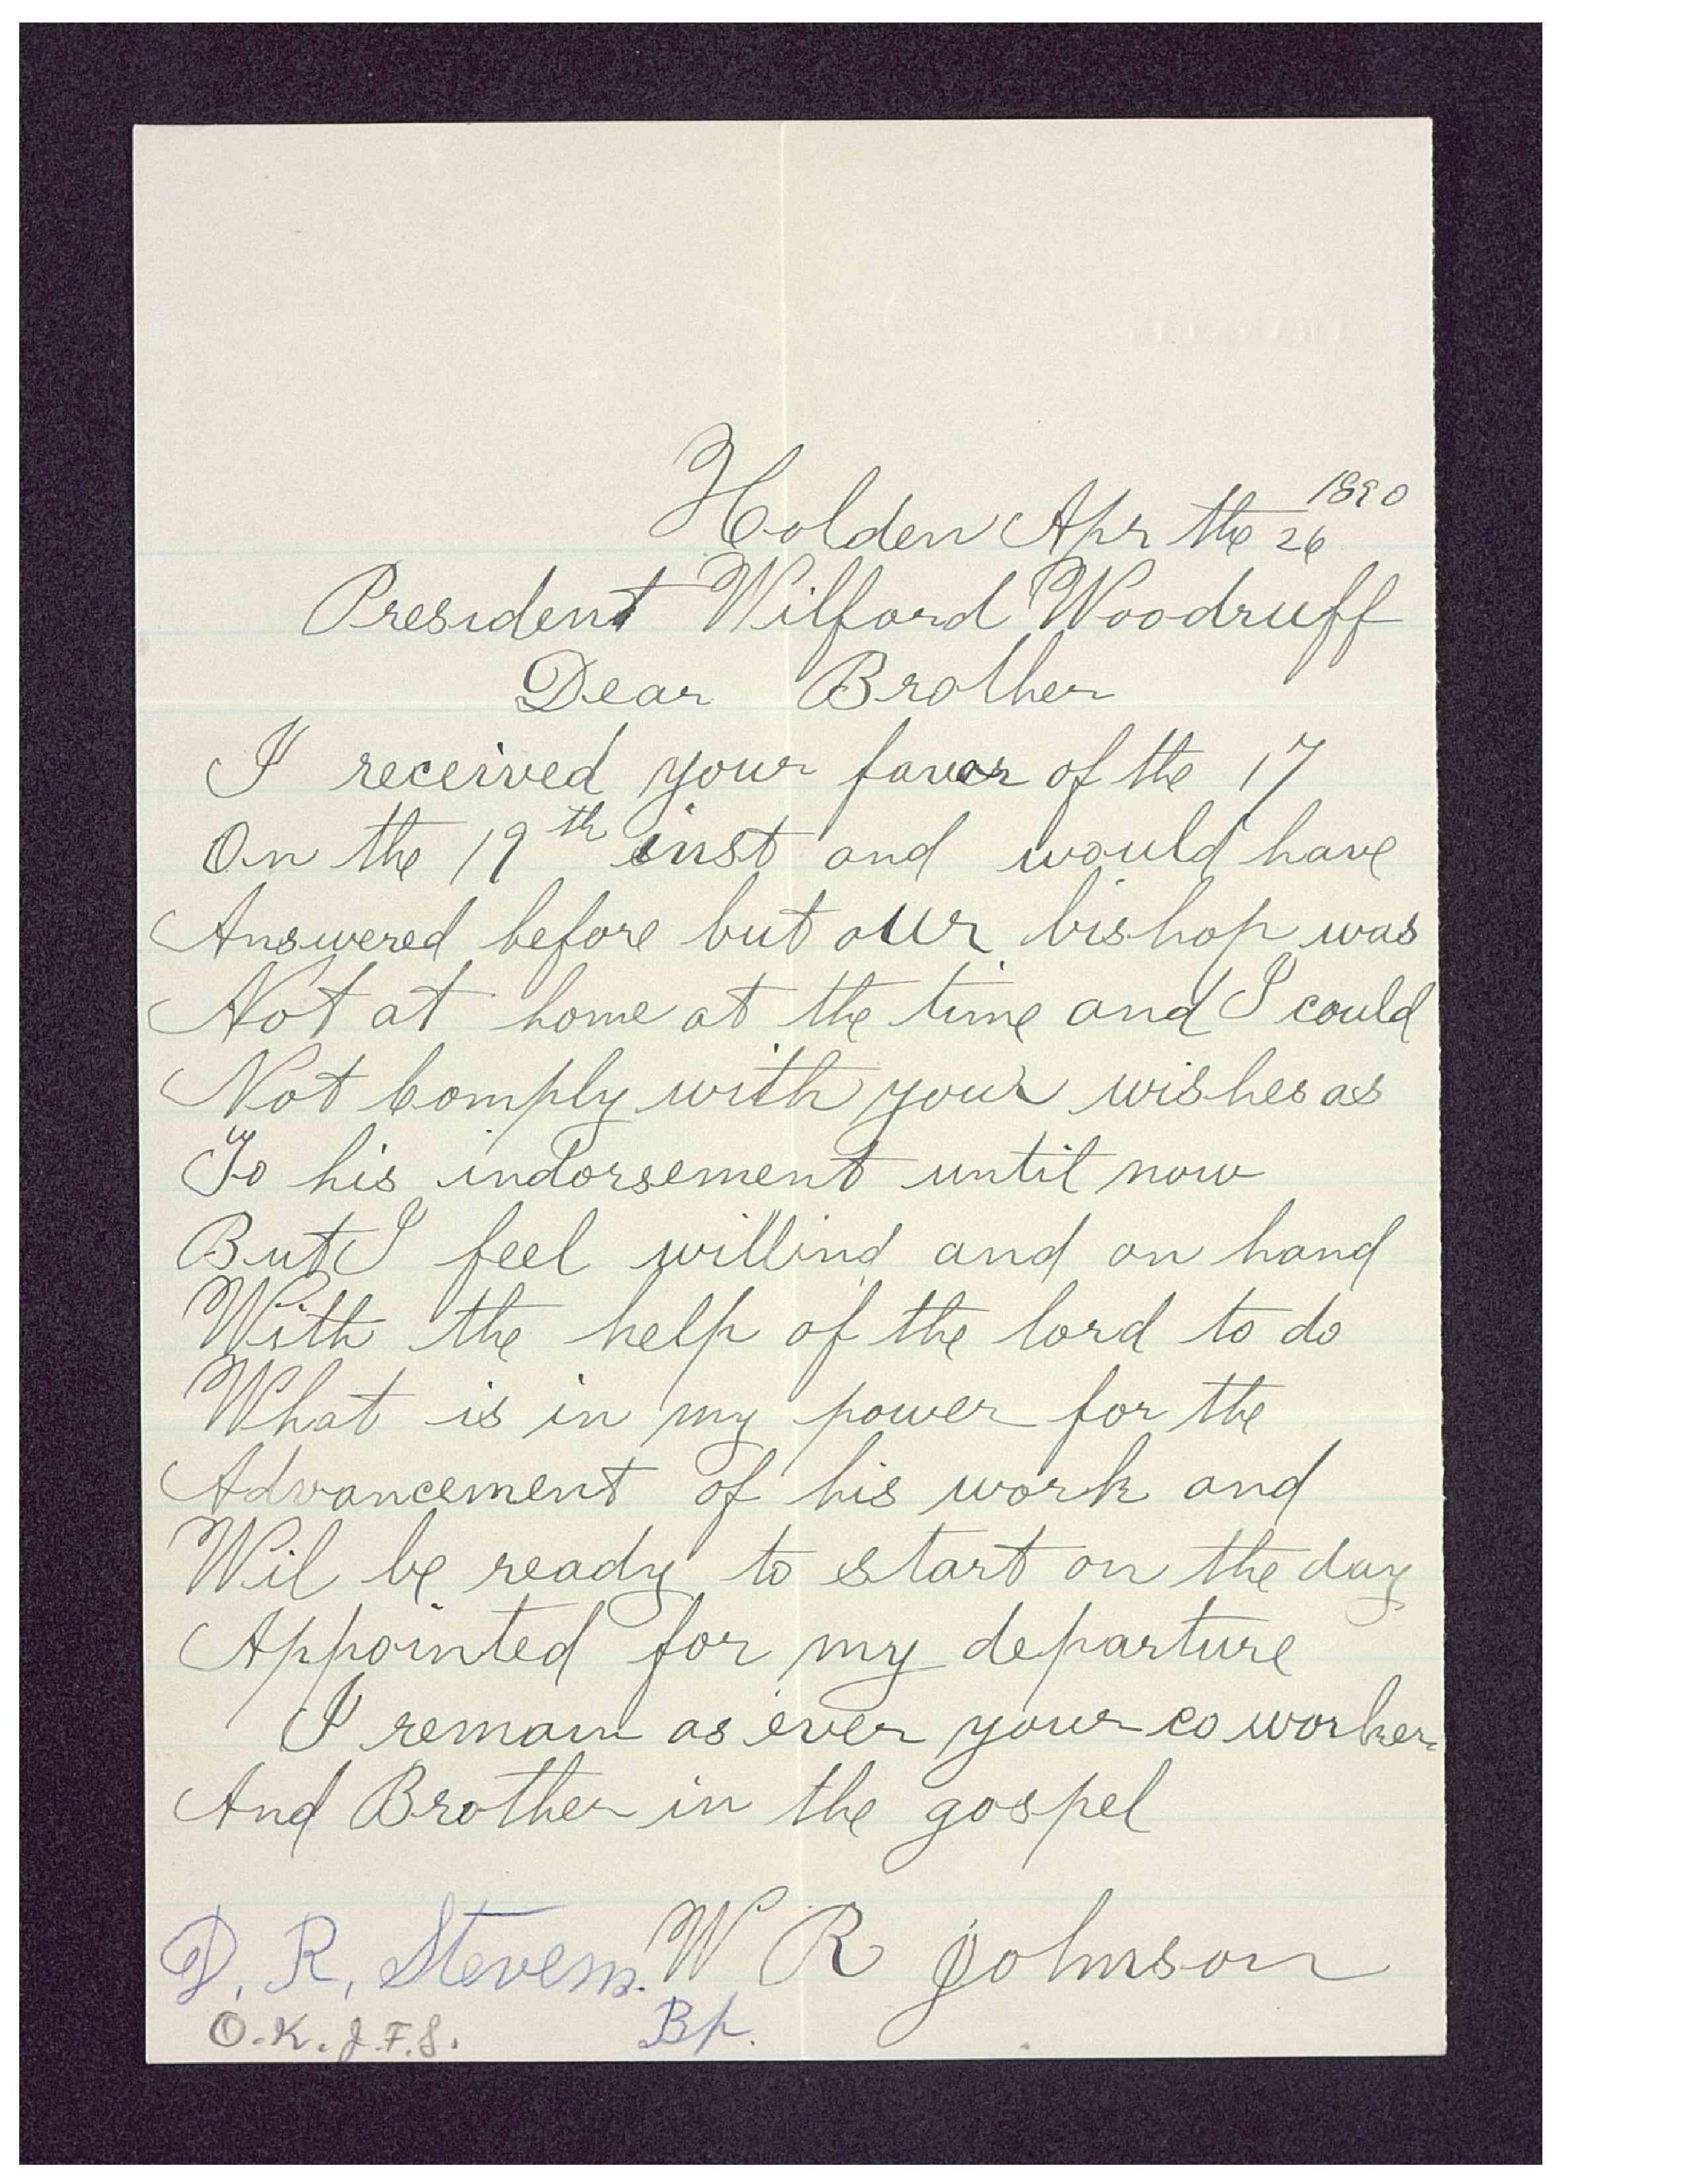 Holden Apr the 26 1890
President Wilford Woodruff
Dear Brother
I received your favor of the 17
On the 19th inst and would have
Answered before but our bishop was
Not at home at the time and I could
Not Comply with your wishes as
To his indorsement until now
But I feel willind and on hand
With the help of the lord to do
What is in my power for the
Advancement of his work and
Wil be ready to start on the day
Appointed for my departure
I remain as ever your co worker
And Brother in the gospel
W R Johnson
D. R. Stevens.
Bp.
O.K. J.F.S.